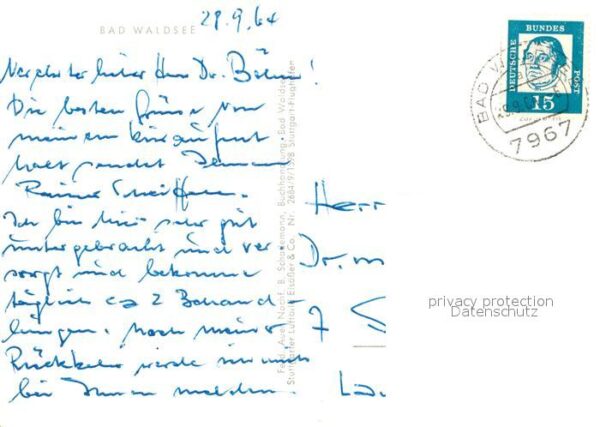 28.9.64
BAD WALDSEE
Verehrter lieber Herr Dr. Böhm!
Die besten Grüsse von
meinem Kuraufent
halt sendet Ihnen
Rainer
Ich bin hier sehr gut
untergebracht und ver
sorgt und bekomme
täglich ca 2 Behand-
lungen. Nach meiner
Rückkehr werde ich mich
bei Ihnen melden.
Buchhandlung, Bad Waldsee
Stuttgarter Luftbild Elsäßer & Co. Nr. 2684/9/1798 Stuttgart-Flughafen
DEUTSCHE
BUNDES
POST
15
BAD W
7967
Herr
Dr. m
7 S
privacy protection
Datenschutz